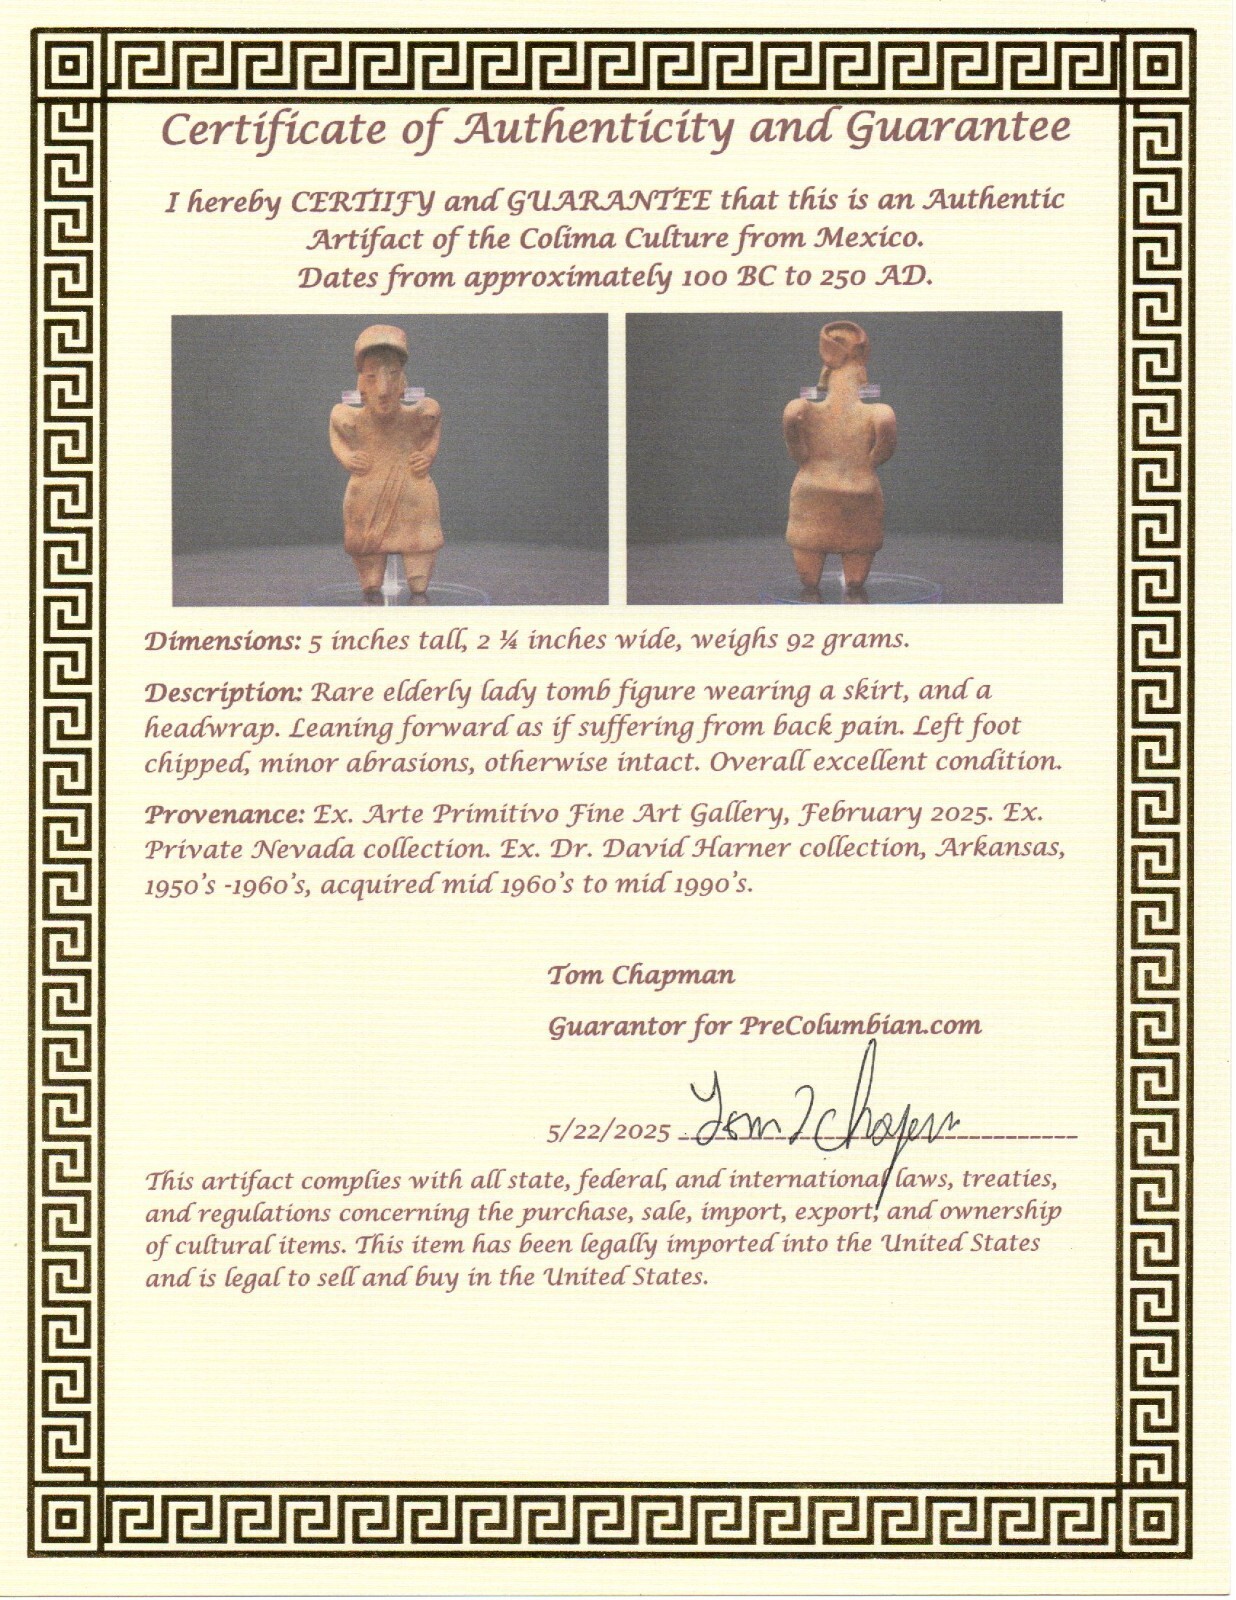 Certificate of Authenticity and Guarantee
I hereby CERTIIFY and GUARANTEE that this is an Authentic
Artifact of the Colima Culture from Mexico.
Dates from approximately 100 BC to 250 AD.
Dimensions: 5 inches tall, 2 ¼ inches wide, weighs 92 grams.
Description: Rare elderly lady tomb figure wearing a skirt, and a
headwrap. Leaning forward as if suffering from back pain. Left foot
chipped, minor abrasions, otherwise intact. Overall excellent condition.
Provenance: Ex. Arte Primitivo Fine Art Gallery, February 2025. Ex.
Private Nevada collection. Ex. Dr. David Harner collection, Arkansas,
1950's -1960's, acquired mid 1960's to mid 1990's.
Tom Chapman
Guarantor for PreColumbian.com
5/22/2025 Tom Chapman
This artifact complies with all state, federal, and international laws, treaties,
and regulations concerning the purchase, sale, import, export, and ownership
of cultural items. This item has been legally imported into the United States
and is legal to sell and buy in the United States.